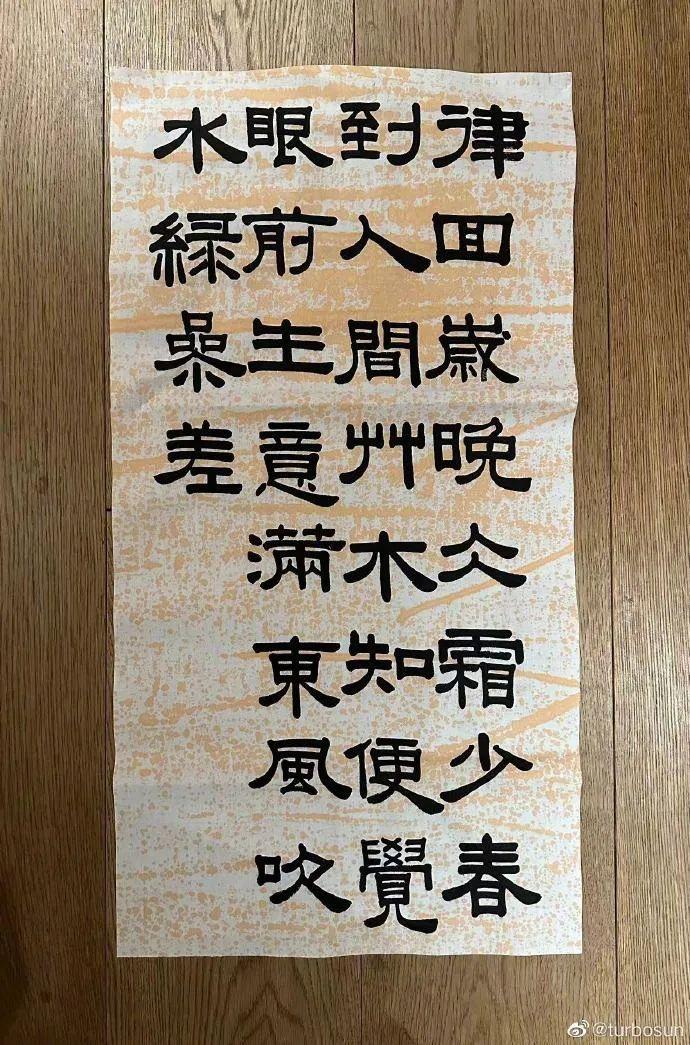 律回歲晚仌霜少春
到人間艸木知便覺
眼前生意滿東風吹
水綠參差
@turbosun